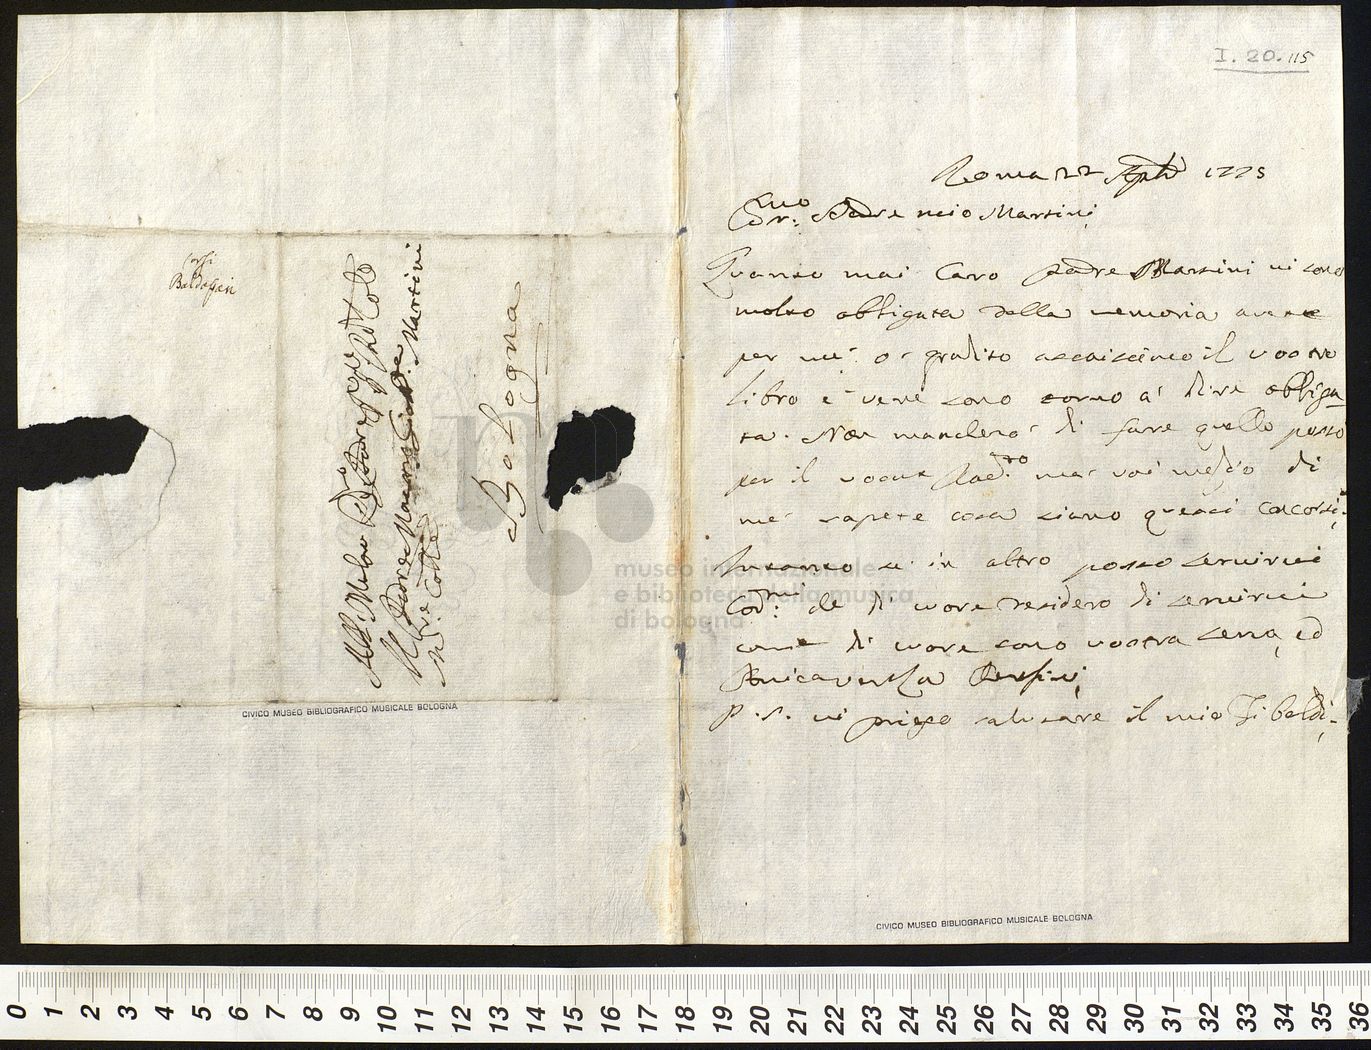 I. 20. 115
Roma 22 Aple 1775
Cmo: Padre mio Martini
Quanto mai Caro padre Martini vi sono
molto obligata della memoria avete
per me: o gradito assaissimo il vostro
libro e vene sono torno a dire obbliga
ta. Non manchero di fare quello posso
per il vostro ma voi meglio di
me sapete cosa siano questi concorsi,
Intanto se in altro posso servirvi
di core desidero di servirvi
come di core sono vostra serva, ed
Amica vera
P. S. vi prego salutare il mio Tibaldi,
Corsi
Al M.
Il Padre Maestro Martini
Bologna
CIVICO MUSEO BIBLIOGRAFICO MUSICALE BOLOGNA
CIVICO MUSEO BIBLIOGRAFICO MUSICALE BOLOGNA
museo internazionale
e biblioteca della musica
di bologna
0 1 2 3 4 5 6 7 8 9 10 11 12 13 14 15 16 17 18 19 20 21 22 23 24 25 26 27 28 29 30 31 32 33 34 35 36